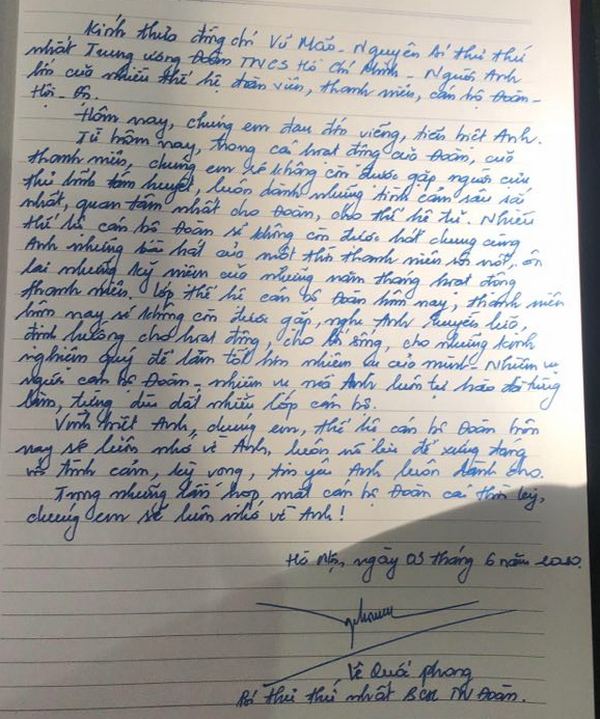 Kính thưa đồng chí Vũ Mão - Nguyên Bí thư thứ
nhất Trung ương Đoàn TNCS Hồ Chí Minh - Người Anh
lớn của nhiều thế hệ đoàn viên, thanh niên, cán bộ Đoàn -
Hội - Đội.
Hôm nay, chúng em đau đớn viếng, tiễn biệt Anh.
Từ hôm nay, trong các hoạt động của Đoàn, của
thanh niên, chúng em sẽ không còn được gặp người cựu
thủ lĩnh tâm huyết, luôn dành những tình cảm sâu sắc
nhất, quan tâm nhất cho Đoàn, cho thế hệ trẻ. Nhiều
thế hệ cán bộ Đoàn sẽ không còn được hát chung cùng
Anh những bài hát của một thời thanh niên sôi nổi, ôn
lại những kỷ niệm của những năm tháng hoạt động
thanh niên. Lớp thế hệ cán bộ Đoàn hôm nay, thanh niên
hôm nay sẽ không còn được gặp, nghe Anh truyền lửa,
định hướng cho hoạt động, cho lẽ sống, cho những kinh
nghiệm quý để làm tốt hơn nhiệm vụ của mình - Nhiệm vụ
người cán bộ Đoàn - nhiệm vụ mà Anh luôn tự hào đã từng
làm, từng dìu dắt nhiều lớp cán bộ.
Vĩnh biệt Anh, chúng em, thế hệ cán bộ Đoàn hôm
nay sẽ luôn nhớ về Anh, luôn nỗ lực để xứng đáng
với tình cảm, kỳ vọng, tin yêu Anh luôn dành cho.
Trong những lần họp mặt cán bộ Đoàn các thời kỳ,
chúng em sẽ luôn nhớ về Anh!
Hà Nội, ngày 03 tháng 6 năm 2020.
Lê Quốc Phong
Bí thư thứ nhất BCH TW Đoàn.